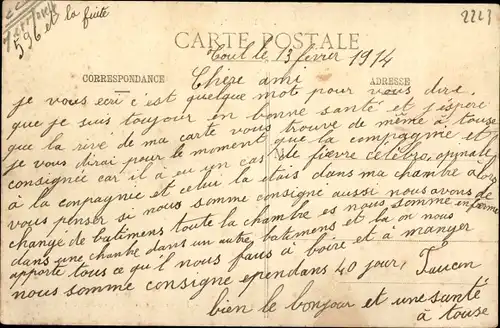 596 et la suite
2223
CARTE POSTALE
Toul le 13 fevrer 1914
CORRESPONDANCE
ADRESSE
Chere ami
je vous ecri c'est quelque mot pour vous dire
que je suis toujour en bonne santé et j'espere
que la rive de ma carte vous trouve de même à touse
je vous dirai pour le moment que la compagnie et
consignée car il à eu un cas de fievre célébro, epinale
à la conpagnie et celui la etais dans ma chambre alors
vous penser si nous somme consigné aussi nous avons de
changé de batimens toute la chambre es nous somme enferme
dans une chanbre dans un autre batimens et la on nous
apporte tous ce qu'il nous faus à boire et à manger
nous somme consigne ependans 40 jour,
bien le bonjour et une santé
à touse